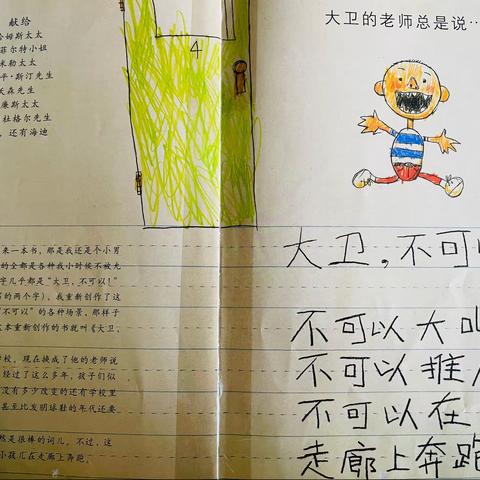 献给
哈姆斯太太
菲尔特小姐
米勒太太
平·斯汀先生
沃森先生
廉斯太太
杜格尔先生
，还有海迪
4
大卫的老师总是说…
来一本书，那是我还是个小男
的全都是各种我小时候不被允
字几乎都是“大卫，不可以！”
写的两个字），我重新创作了这
“不可以”的各种场景，那样子
本重新创作的书就叫《大卫，
学校，现在换成了他的老师说
经过了这么多年，孩子们似
没有多少改变的还有学校里
甚至比发明球鞋的年代还要
然是很棒的词儿。不过，这
小孩儿在走廊上奔跑。
大卫，不可
不可以大叫
不可以推
不可以在
走廊上奔跑